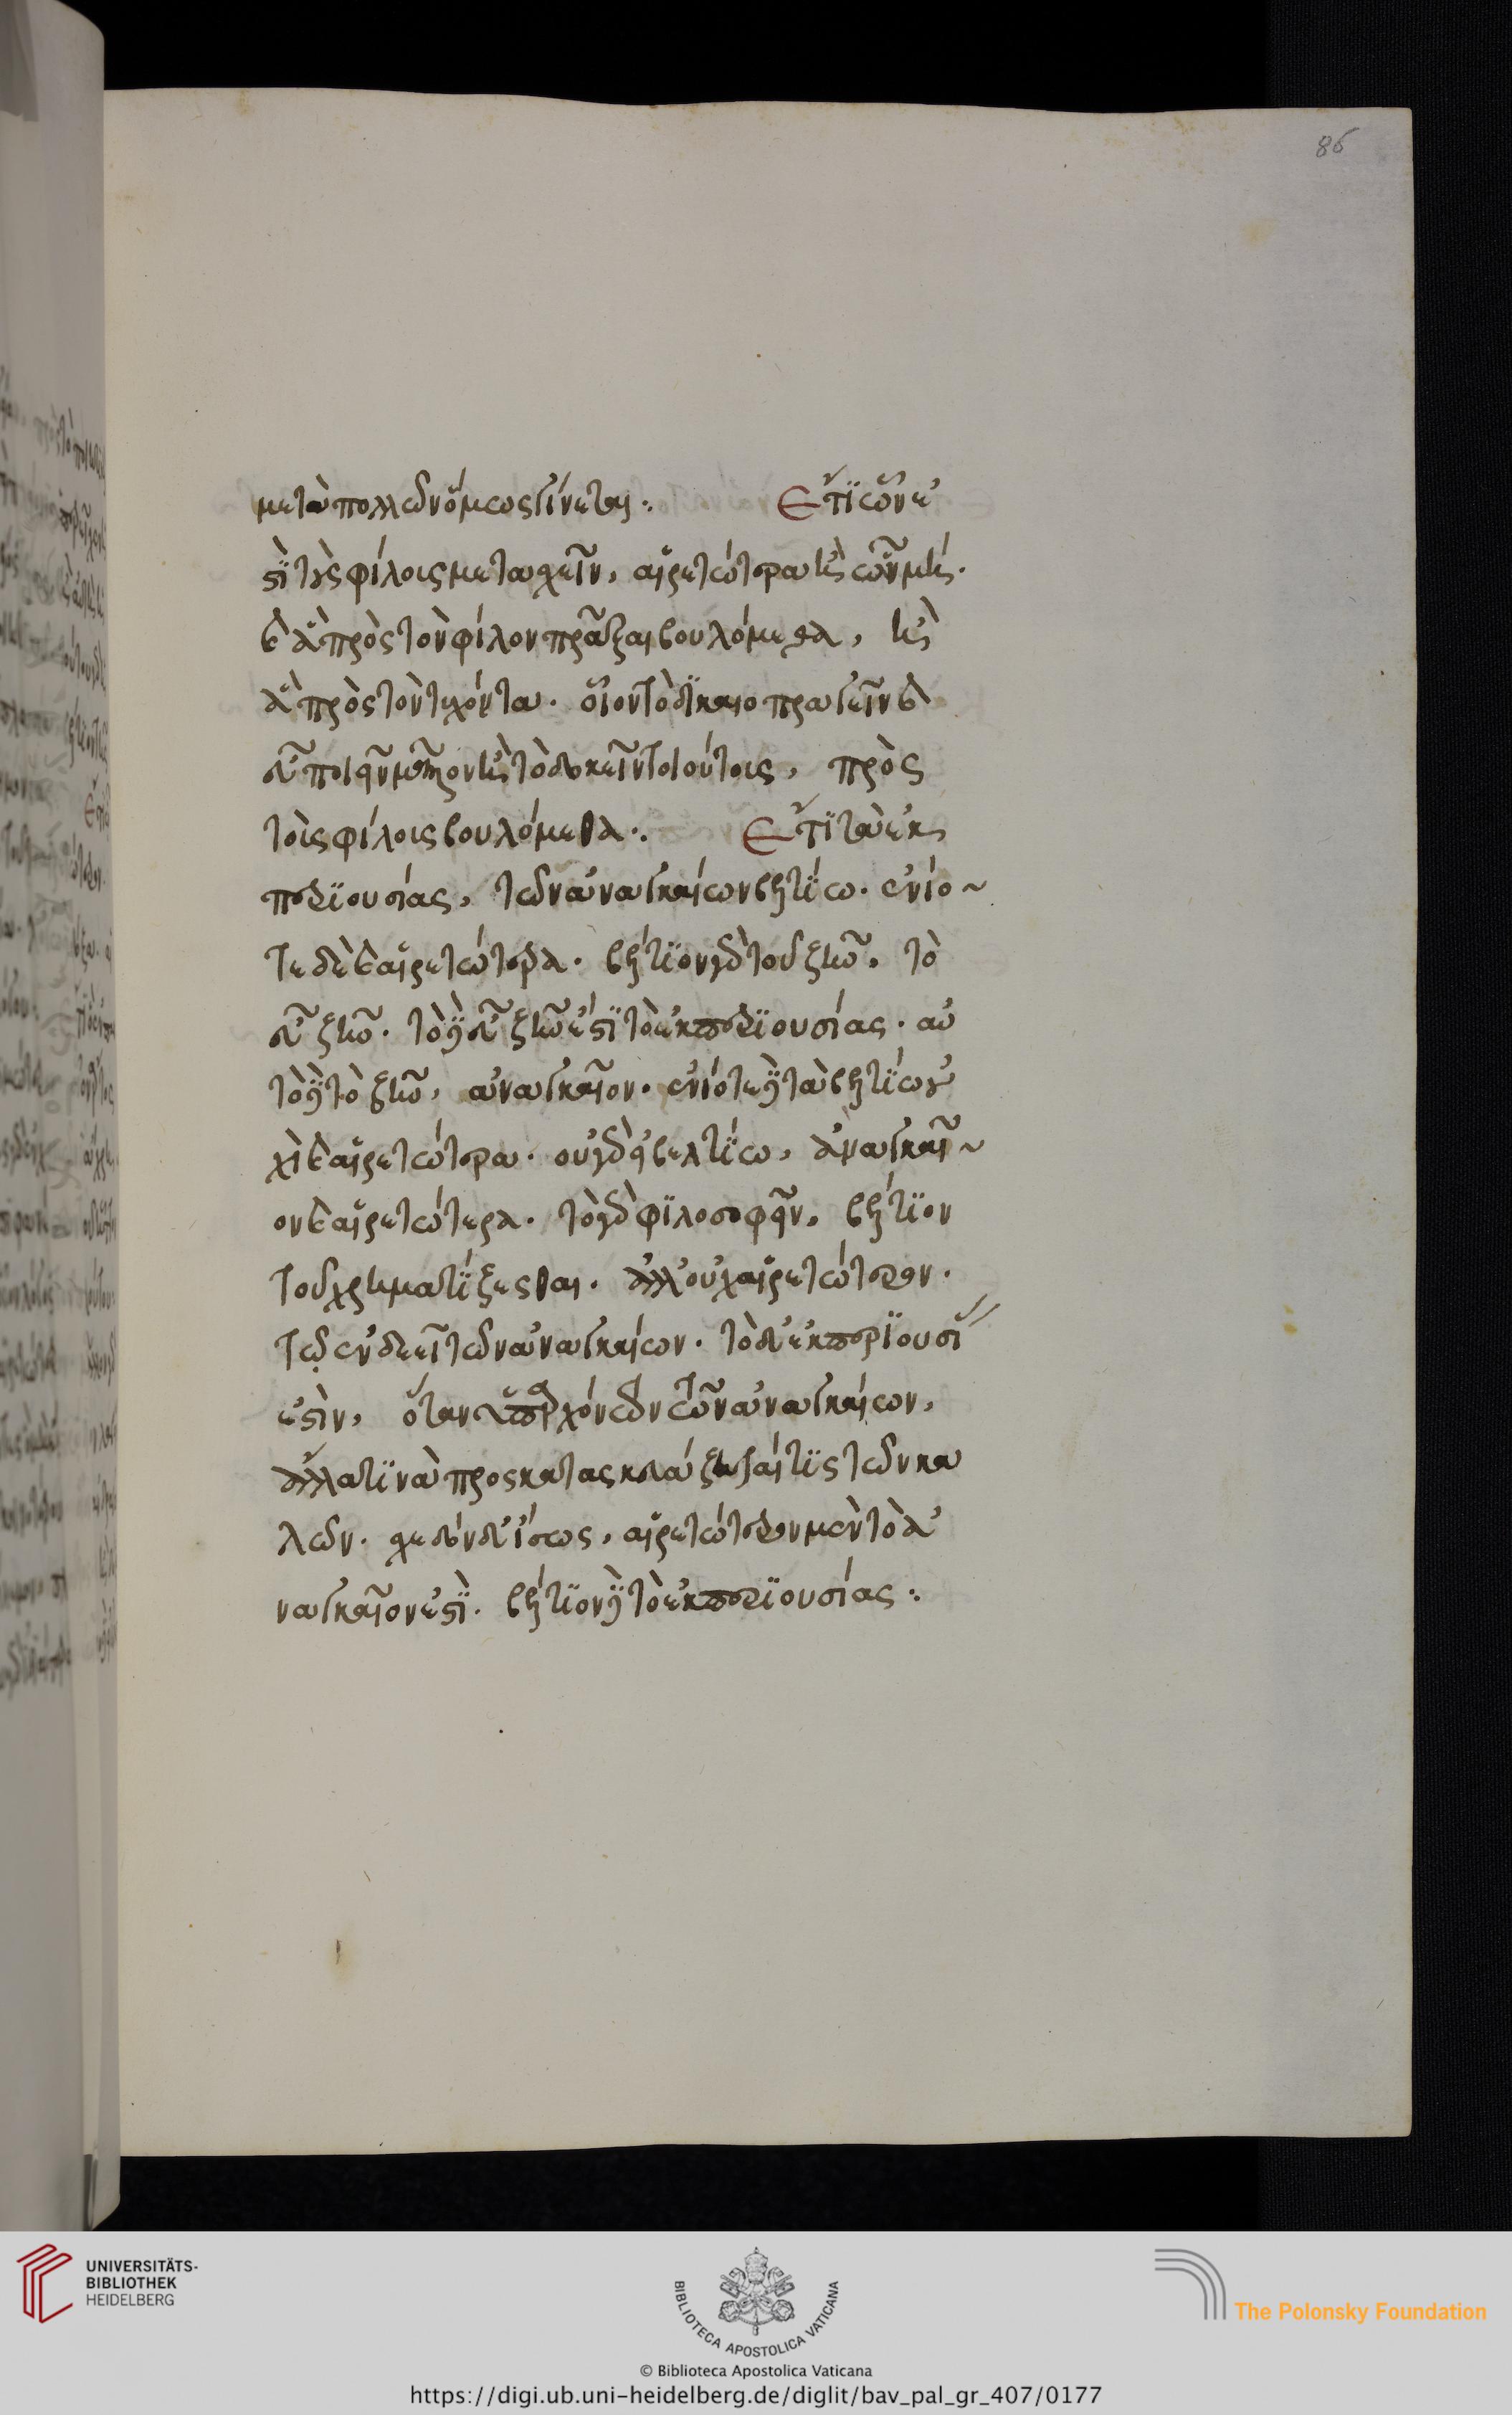 μετὰ πολλῶν ὅμως γίνεται: Ἔτι ὧν ἔ
στι τοὺς φίλοις μετασχεῖν, αἱρετώτερα ἢ ὧν μή.
καὶ ἃ πρὸς τὸν φίλον πρᾶξαι βουλόμεθα, ἢ
ἃ πρὸς τὸν τυχόντα. οἷον τὸ δικαιοπραγεῖν καὶ
εὖ ποιεῖν μᾶλλον ἢ τὸ δοκεῖν τοιούτοις, πρὸς
τοῖς φίλοις βουλόμεθα: Ἔτι τὰ ἐκ
περιουσίας, τῶν ἀναγκαίων βελτίω. ἐνίο
τε δὲ καὶ αἱρετώτερα. βέλτιον γὰρ τοῦ ζῆν, τὸ
εὖ ζῆν. τὸ δὲ εὖ ζῆν ἐστι τὸ ἐκ περιουσίας. αὐ
τὸ δὲ τὸ ζῆν, ἀναγκαῖον. ἐνίοτε δὲ τὰ βελτίω οὐ
χὶ καὶ αἱρετώτερα. οὐ γὰρ εἰ βελτίω, ἀναγκαῖ
ον καὶ αἱρετώτερα. τὸ γὰρ φιλοσοφεῖν, βέλτιον
τοῦ χρηματίζεσθαι. ἀλλ' οὐχ αἱρετώτερον.
τῷ ἐνδεεῖ τῶν ἀναγκαίων. τὸ δ' ἐκ περιουσί
ἐστὶν, ὅταν ὑπαρχόντων τῶν ἀναγκαίων,
ἄλλα τινὰ προσκατασκευάζηταί τις τῶν κα
λῶν. σχεδὸν δ' ἴσως, αἱρετώτερον μὲν τὸ ἀ
ναγκαῖόν ἐστι. βέλτιον δὲ τὸ ἐκ περιουσίας:
86
UNIVERSITÄTS-
BIBLIOTHEK
HEIDELBERG
BIBLIOTECA APOSTOLICA VATICANA
The Polonsky Foundation
© Biblioteca Apostolica Vaticana
https://digi.ub.uni-heidelberg.de/diglit/bav_pal_gr_407/0177